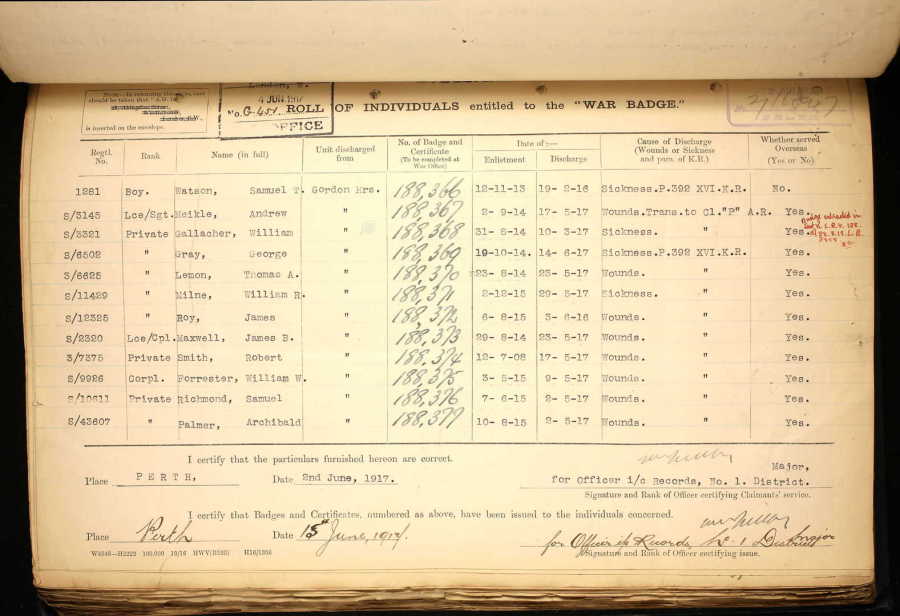 NOTE—In returning this paper, care
should be taken that "A.G. 10
is inserted on the envelope.
London, W.
4 JUN 1917
No. G-451
OFFICE
ROLL OF INDIVIDUALS entitled to the "WAR BADGE."
Regtl. No. Rank Name (in full) Unit discharged from No. of Badge and Certificate (To be completed at War Office) Date of :— Enlistment Discharge Cause of Discharge (Wounds or Sickness and para. of K.R.) Whether served Overseas (Yes or No)
1281 Boy. Watson, Samuel T. Gordon Hrs. 188,366 12-11-13 19- 2-16 Sickness.P.392 XVI.K.R. No.
S/3145 Lce/Sgt. Meikle, Andrew " 188,367 2- 9-14 17- 5-17 Wounds.Trans.to Cl."P" A.R. Yes.
S/3321 Private Gallacher, William " 188,368 31- 8-14 10- 3-17 Sickness. " Yes.
S/6502 " Gray, George " 188,369 19-10-14. 14- 6-17 Sickness.P.392 XVI.K.R. Yes.
3/6625 " Lemon, Thomas A. " 188,370 23- 8-14 23- 5-17 Wounds. " Yes.
S/11429 " Milne, William R. " 188,371 2-12-15 29- 5-17 Sickness. " Yes.
S/12325 " Roy, James " 188,372 6- 8-15 3- 6-16 Wounds. " Yes.
S/2320 Lce/Cpl. Maxwell, James B. " 188,373 29- 8-14 23- 5-17 Wounds. " Yes.
3/7375 Private Smith, Robert " 188,374 12- 7-08 17- 5-17 Wounds. " Yes.
S/9926 Corpl. Forrester, William W. " 188,375 3- 5-15 9- 5-17 Wounds. " Yes.
S/10611 Private Richmond, Samuel " 188,376 7- 6-15 2- 5-17 Wounds. " Yes.
S/43607 " Palmer, Archibald " 188,377 10- 8-15 2- 5-17 Wounds. " Yes.
I certify that the particulars furnished hereon are correct.
Major,
Place PERTH, Date 2nd June, 1917. for Officer i/c Records, No. 1. District.
Signature and Rank of Officer certifying Claimants' service.
I certify that Badges and Certificates, numbered as above, have been issued to the individuals concerned.
Place Perth Date 15th June, 1917. for Officer i/c Records, No. 1 District Major
Signature and Rank of Officer certifying issue.
100,000 10/16 H16/1036